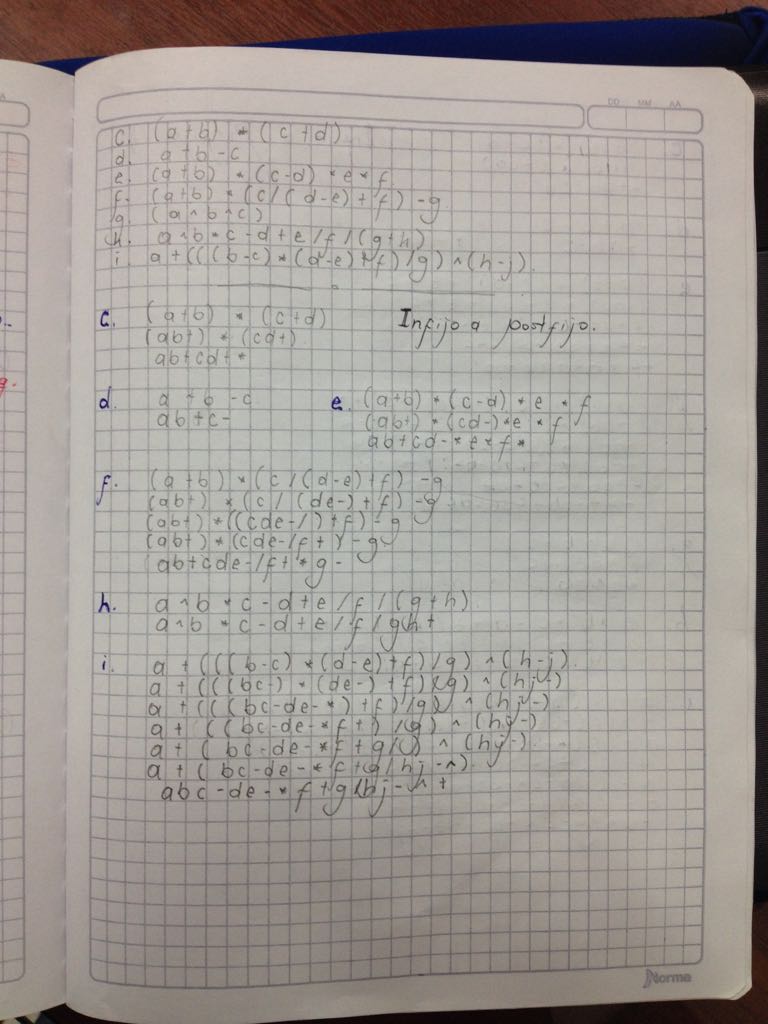 DD MM AA
c. (a+b) * (c+d)
d. a+b-c
e. (a+b) * (c-d) * e * f
f. (a+b) * (c/(d-e)+f) -g
g. (a^b^c)
h. a^b*c-d+e/f/(g+h)
i. a+(((b-c)*(d-e)+f)/g)^(h-j)
c. (a+b) * (c+d) Infijo a postfijo.
(ab+) * (cd+)
ab+cd+*
d. a+b-c e. (a+b)*(c-d)*e*f
ab+c- (ab+)*(cd-)*e*f
ab+cd-*e*f*
f. (a+b)*(c/(d-e)+f)-g
(ab+)*(c/(de-)+f)-g
(ab+)*((cde-/)+f)-g
(ab+)*(cde-/f+)-g
ab+cde-/f+*g-
h. a^b*c-d+e/f/(g+h)
a^b*c-d+e/f/gh+
i. a+(((b-c)*(d-e)+f)/g)^(h-j)
a+(((bc-)*(de-)+f)/g)^(hj-)
a+(((bc-de-*)+f)/g)^(hj-)
a+((bc-de-*f+)/g)^(hj-)
a+(bc-de-*f+g/)^(hj-)
a+(bc-de-*f+g/hj-^)
abc-de-*f+g/hj-^+
Norma